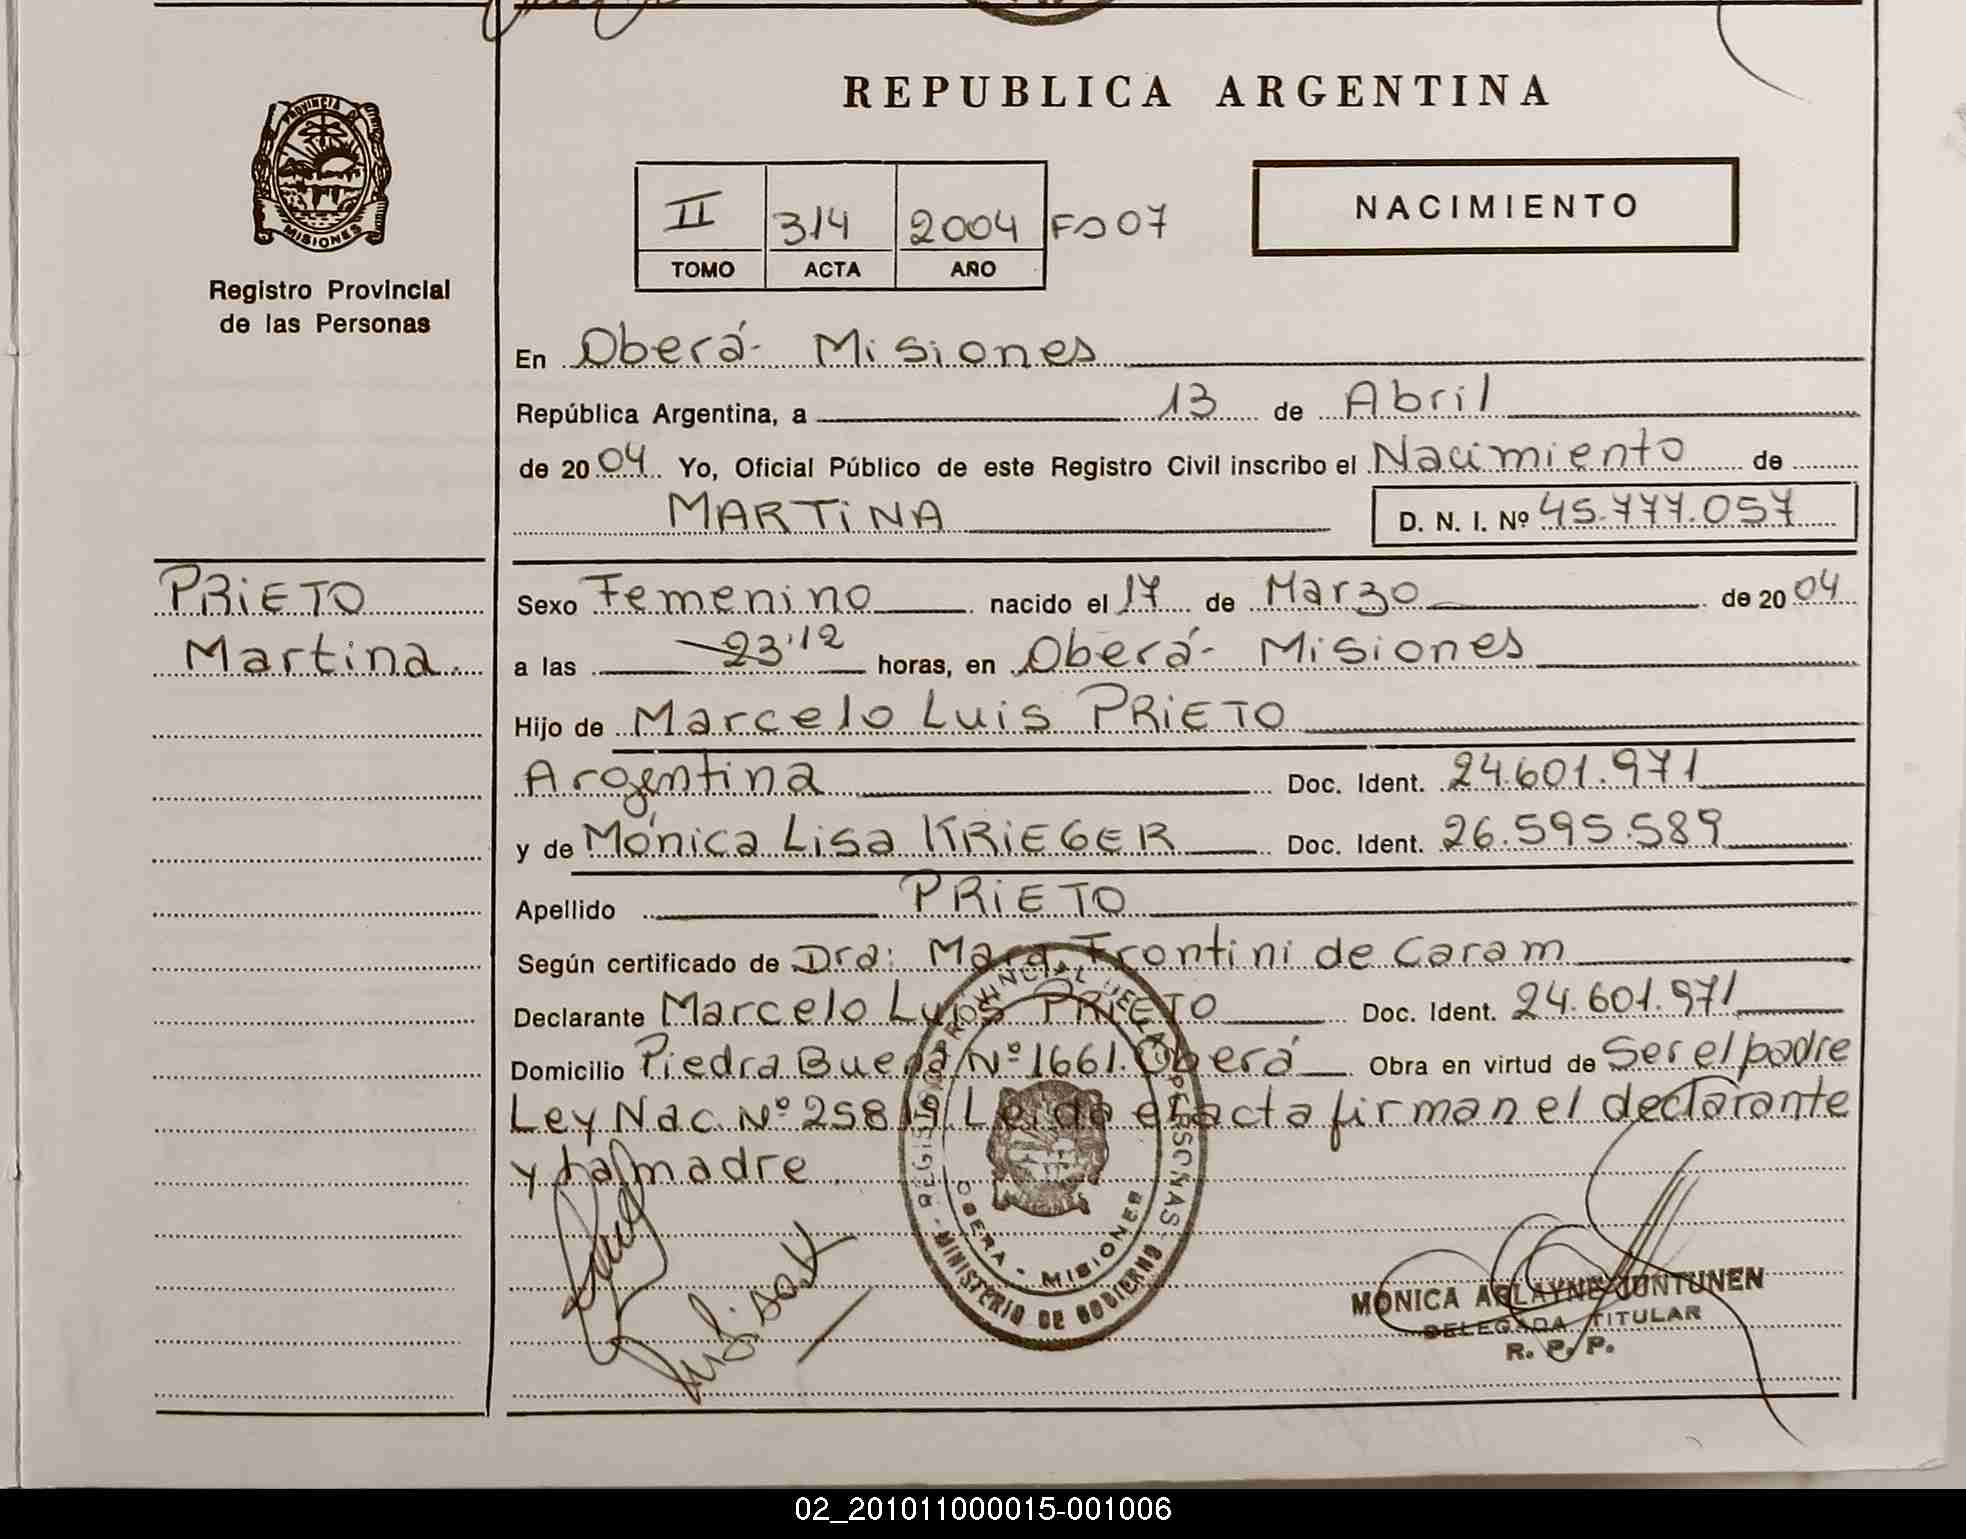 REPUBLICA ARGENTINA
PROVINCIA DE
MISIONES
Registro Provincial
de las Personas
II 314 2004 Fº 07
TOMO ACTA AÑO
NACIMIENTO
En Oberá- Misiones
República Argentina, a 13 de Abril
de 2004 Yo, Oficial Público de este Registro Civil inscribo el Nacimiento de
MARTINA D. N. I. Nº 45.777.057
PRIETO
Martina.
Sexo Femenino nacido el 17 de Marzo de 2004
a las 23'12 horas, en Oberá- Misiones
Hijo de Marcelo Luis PRIETO
Argentina Doc. Ident. 24.601.971
y de Mónica Lisa KRIEGER Doc. Ident. 26.595.589
Apellido PRIETO
Según certificado de Dra: Marg. Frontini de Caram
Declarante Marcelo Luis PRIETO Doc. Ident. 24.601.971
Domicilio Piedra Buena Nº 1661. Oberá Obra en virtud de Ser el padre
Ley Nac. Nº 25819. Leída el acta firman el declarante
y la madre
REGISTRO PROVINCIAL DE LAS PERSONAS
OBERA - MISIONES
MINISTERIO DE GOBIERNO
MONICA ARLAYNE JUNTUNEN
DELEGADA TITULAR
R. P. P.
02_201011000015-001006